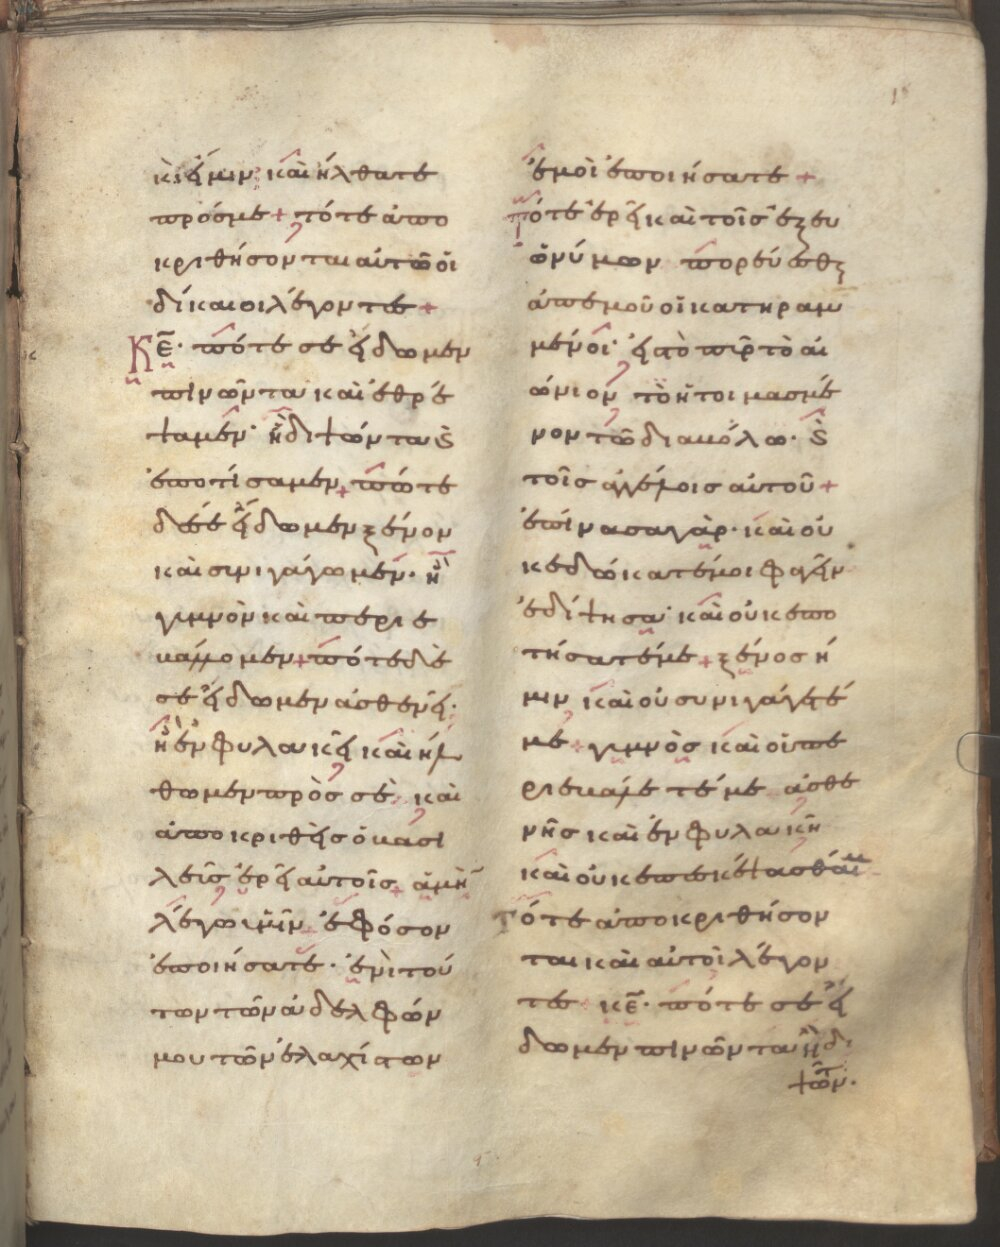 κὶ ἤμιν· καὶ ἤλθατε
πρόσμε + τότε ἀπο
κριθήσονται αὐτῶ οἱ
δίκαιοι λέγοντες +
Κε̄· πότε σὲ εἴδωμεν
πινῶντα καὶ ἐθρέ
ψαμεν· ἢ διψῶντα ϗ
ἐποτίσαμεν + πώτε
δέ σε εἴδωμεν ξένον
καὶ συνιγάγωμεν· ἢ
γυμνὸν καὶ περιε
βάλλομεν + πότε δέ
σε εἴδωμεν ἀσθενεῖ·
ἢ ἐν φυλακεῖ καὶ ἤλ
θωμεν πρὸς σέ· καὶ
ἀποκριθεὶς ὁ βασι
λεῖς ἐρεῖ αὐτοῖς + ἀμὴν
λέγω ὑμῖν + ἐφόσον
ἐποιήσατε· ἑνὶ τού
των τῶν ἀδελφῶν
μου τῶν ἐλαχίστων
ἐμοὶ ἐποιήσατε +
Τότε ἐρεῖ καὶ τοῖς ἐξ ευ
ωνύμων πορεύεσθε
ἀπ ἐμοῦ οἱ κατηραμ
μένοι· εἰς τὸ πῦρ τὸ αἰ
ώνιον τὸ ἡτοιμασμέ
νον τῶ διαβόλω· ϗ
τοῖς ἀγγέλοις αὐτοῦ +
ἐπίνασα γάρ· καὶ οὐ
κ ἐδώκατέ μοι φαγεῖν
ἐδίψησα· καὶ οὐκ ἐπο
τήσατέ με + ξένος ἤ
μιν καὶ οὐ συνιγάγετέ
με + γυμνὸς καὶ οὐ πε
ριεβάλετέ με ἀσθε
νὴς καὶ ἐν φυλακῆ
καὶ οὐκ ἐπεσκέψασθαί με
Τότε ἀποκριθήσον
ται καὶ αὐτοὶ λέγον
τες + κε̄· πότε σὲ εἴ
δωμεν πινῶντα ἢ δι
ψῶντ·